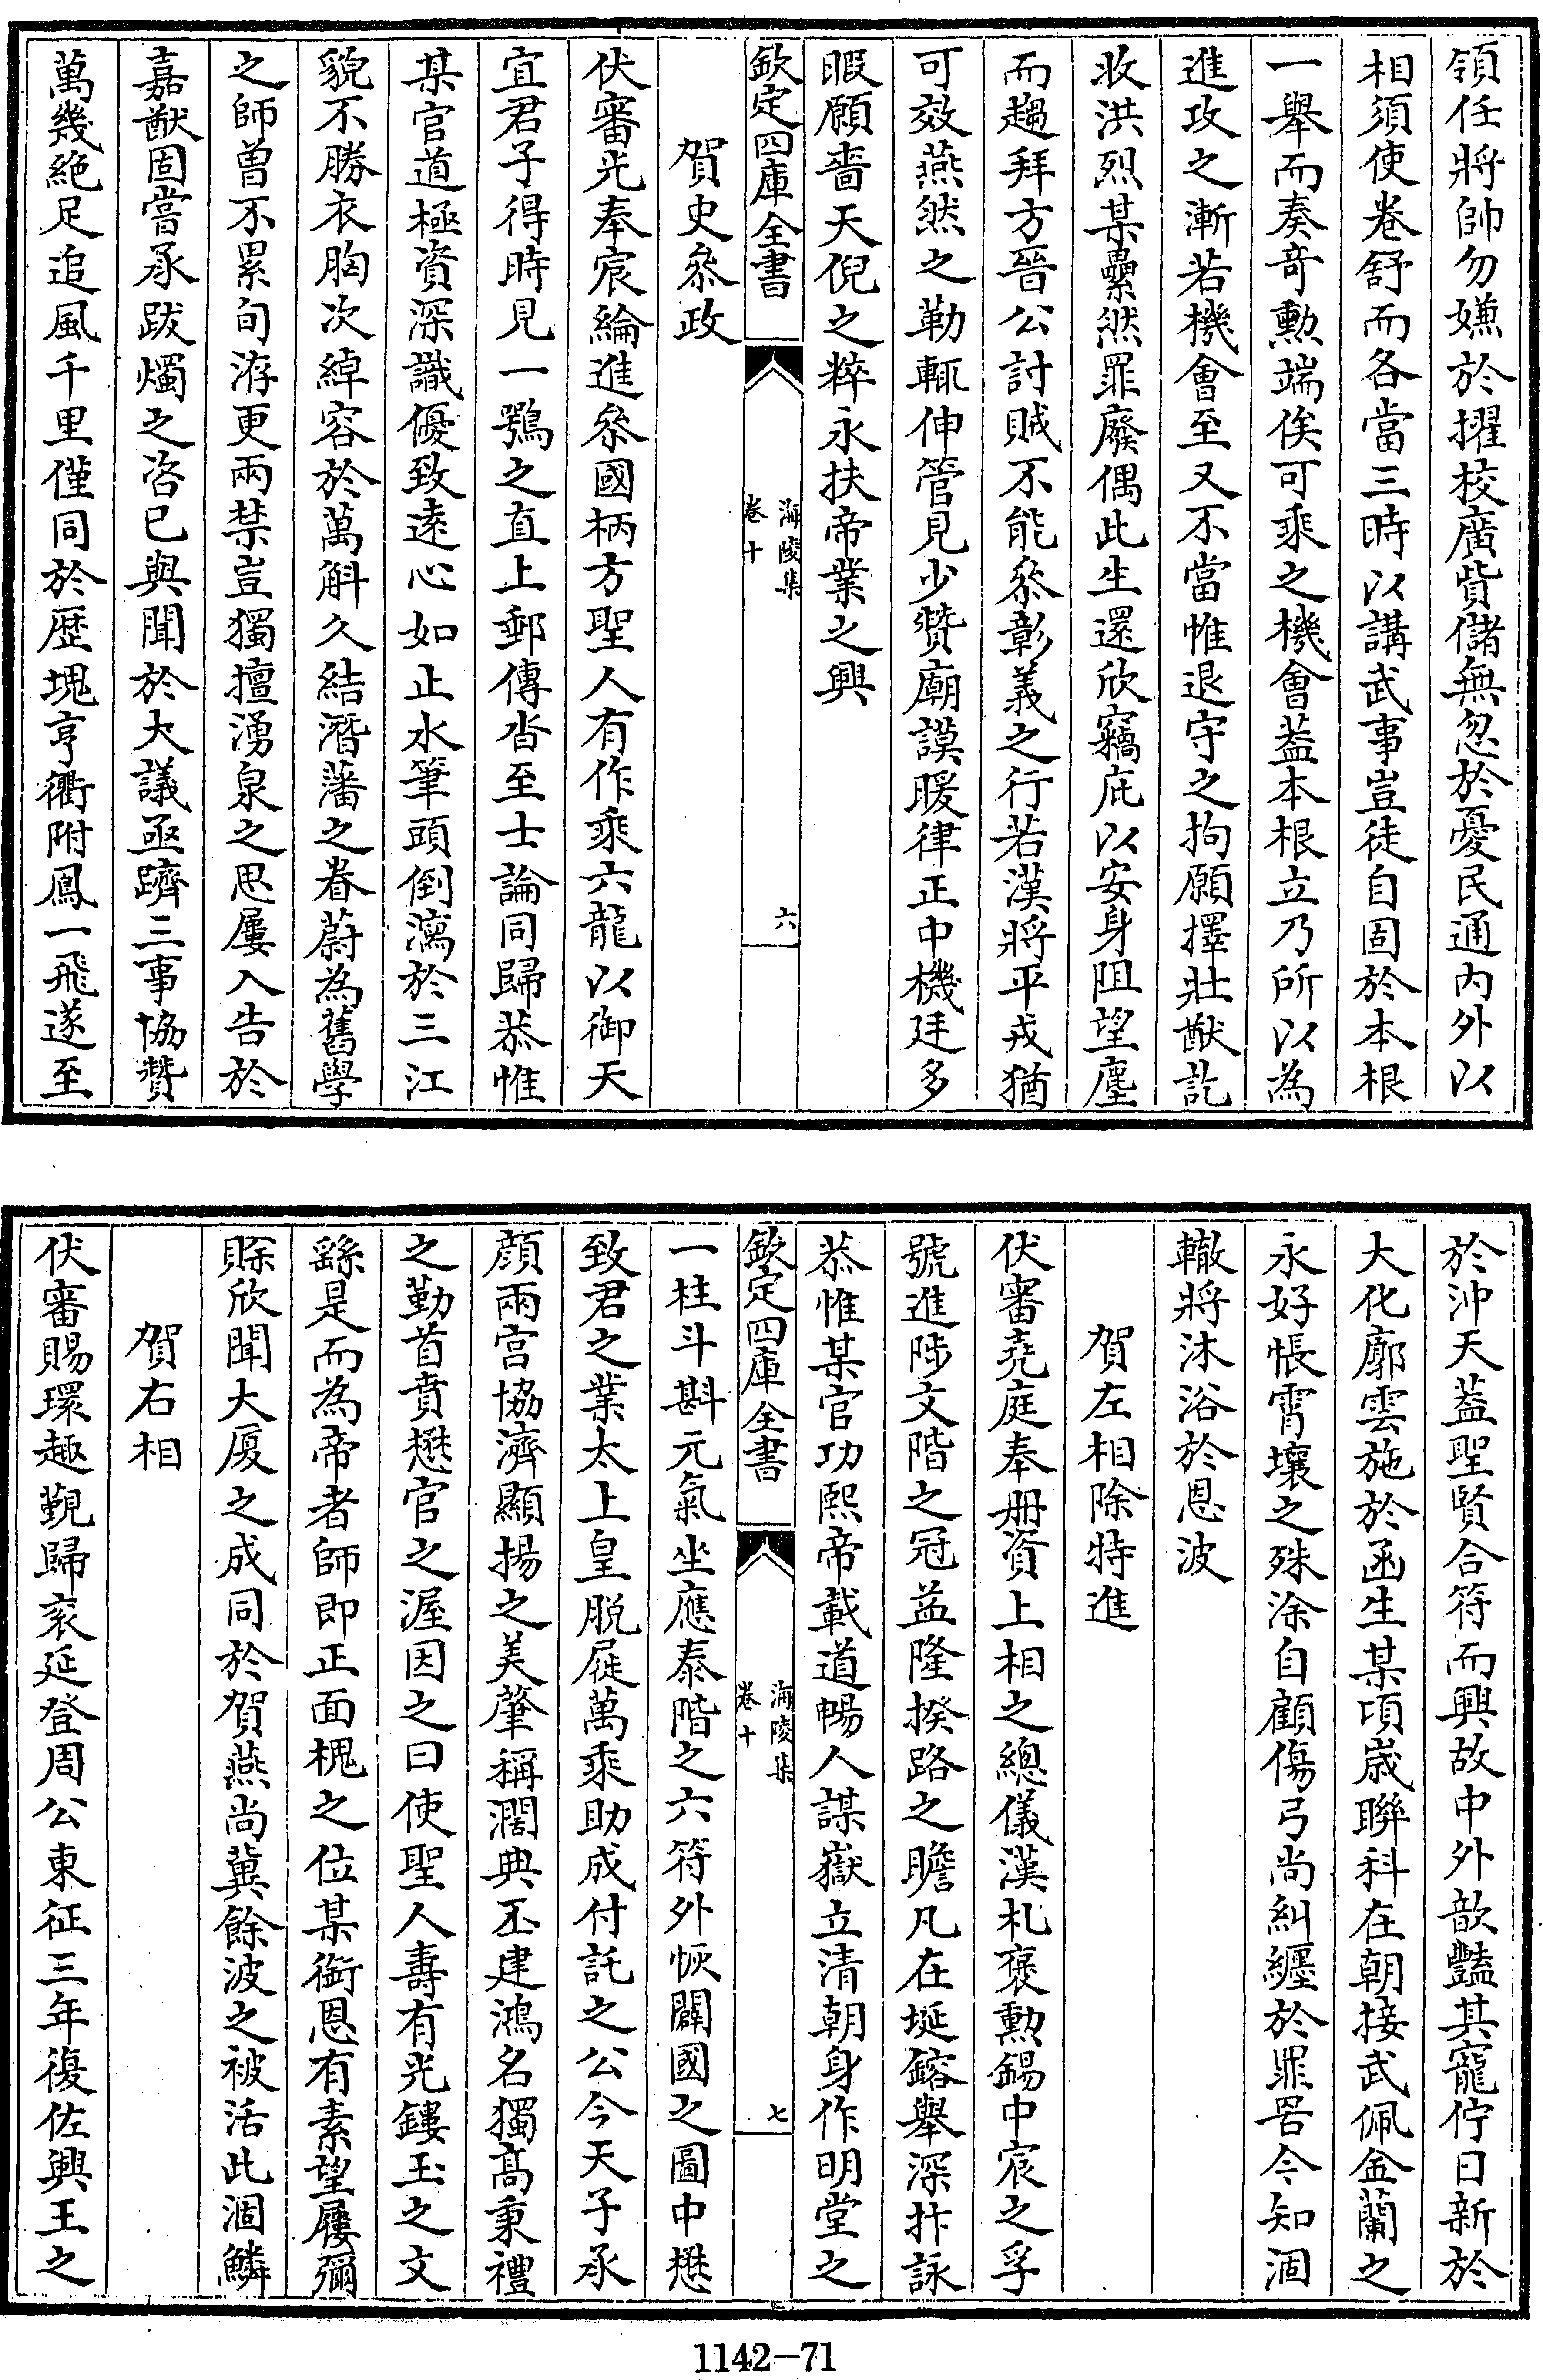 領任將帥勿嫌於擢校廣貲儲無忽於憂民通内外以
相須使卷舒而各當三時以講武事豈徒自固於本根
一舉而奏竒勲端俟可乘之機會葢本根立乃所以為
進攻之漸若機會至又不當惟退守之拘願擇壯猷訖
收洪烈某纍然罪廢偶此生還欣竊庇以安身阻望塵
而趨拜方晉公討賊不能叅彰義之行若漢將平戎猶
可效燕然之勒輒伸管見少贊廟謨暖律正中機廷多
暇願嗇天倪之粹永扶帝業之興
欽定四庫全書
海陵集
卷十
六
賀史叅政
伏審光奉宸綸進叅國柄方聖人有作乘六龍以御天
宜君子得時見一鶚之直上郵傳沓至士論同歸恭惟
某官道極資深識優致遠心如止水筆頭倒瀉於三江
貌不勝衣胸次綽容於萬斛久結潛藩之眷蔚為舊學
之師曽不累旬洊更兩禁豈獨擅湧泉之思屢入告於
嘉猷固嘗承跋燭之咨已與聞於大議亟躋三事協贊
萬幾絶足追風千里僅同於歴塊亨衢附鳳一飛遂至
於沖天葢聖賢合符而興故中外歆豔其寵佇日新於
大化廓雲施於函生某頃歲聯科在朝接武佩金蘭之
永好悵霄壤之殊涂自顧傷弓尚糾纒於罪罟今知涸
轍將沐浴於恩波
賀左相除特進
伏審堯庭奉册資上相之總儀漢札褒勲錫中宸之孚
號進陟文階之冠益隆揆路之瞻凡在埏鎔舉深抃詠
恭惟某官功熙帝載道暢人謀嶽立清朝身作明堂之
欽定四庫全書
海陵集
卷十
七
一柱斗斟元氣坐應泰階之六符外恢闢國之圖中懋
致君之業太上皇脱屣萬乘助成付託之公今天子承
顔兩宫協濟顯揚之美肇稱濶典丕建鴻名獨髙秉禮
之勤首賁懋官之渥因之曰使聖人夀有光鏤玉之文
繇是而為帝者師即正面槐之位某銜恩有素望屨彌
賒欣聞大厦之成同於賀燕尚冀餘波之被活此涸鱗
賀右相
伏審賜環趣覲歸衮延登周公東征三年復佐興王之
1142-71